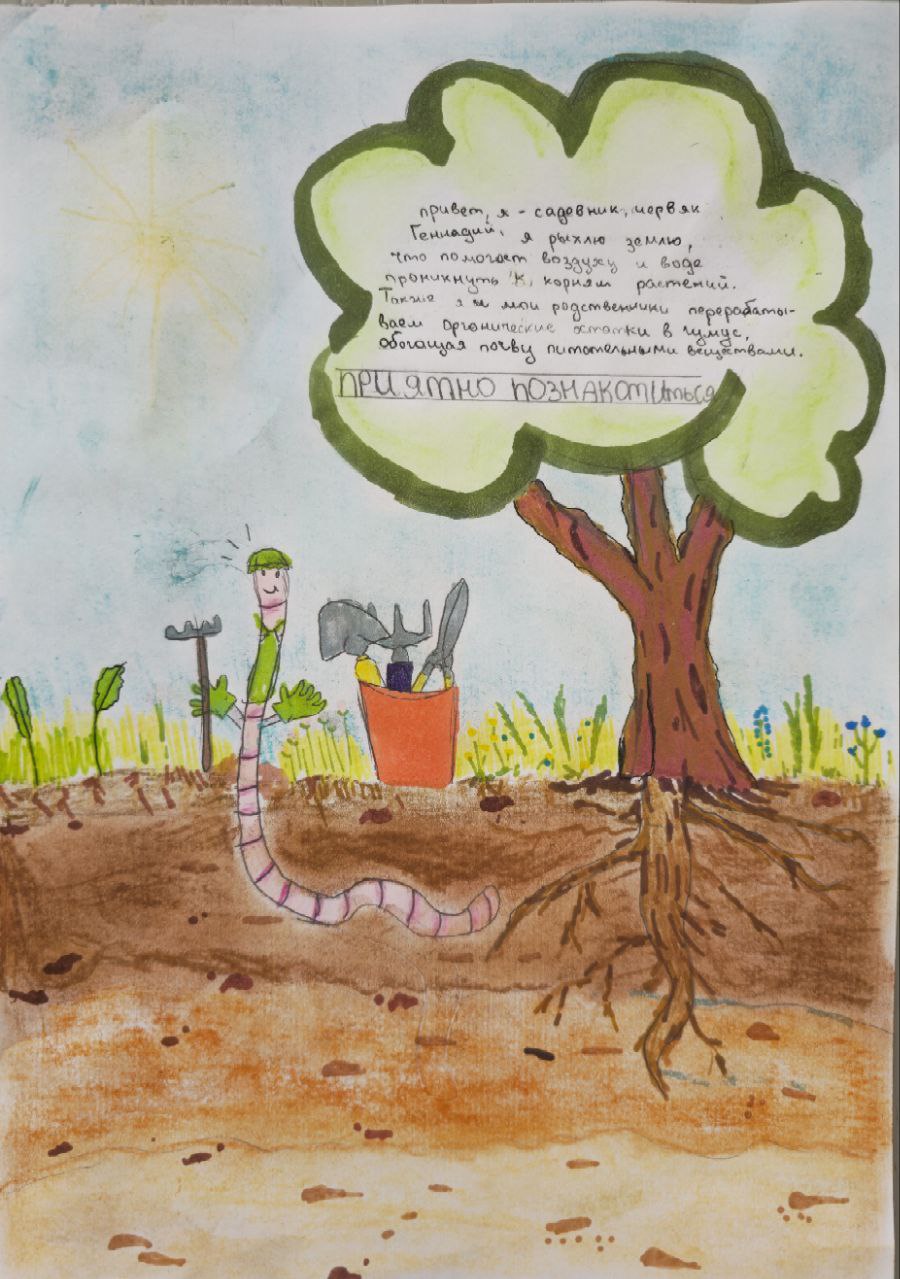 привет, я - садовник, червяк
Геннадий. я рыхлю землю,
что помогает воздуху и воде
проникнуть к корням растений.
Также я и мои родственники перерабаты-
ваем органические остатки в гумус,
обогащая почву питательными веществами.
ПРИЯТНО ПОЗНАКОМИТЬСЯ